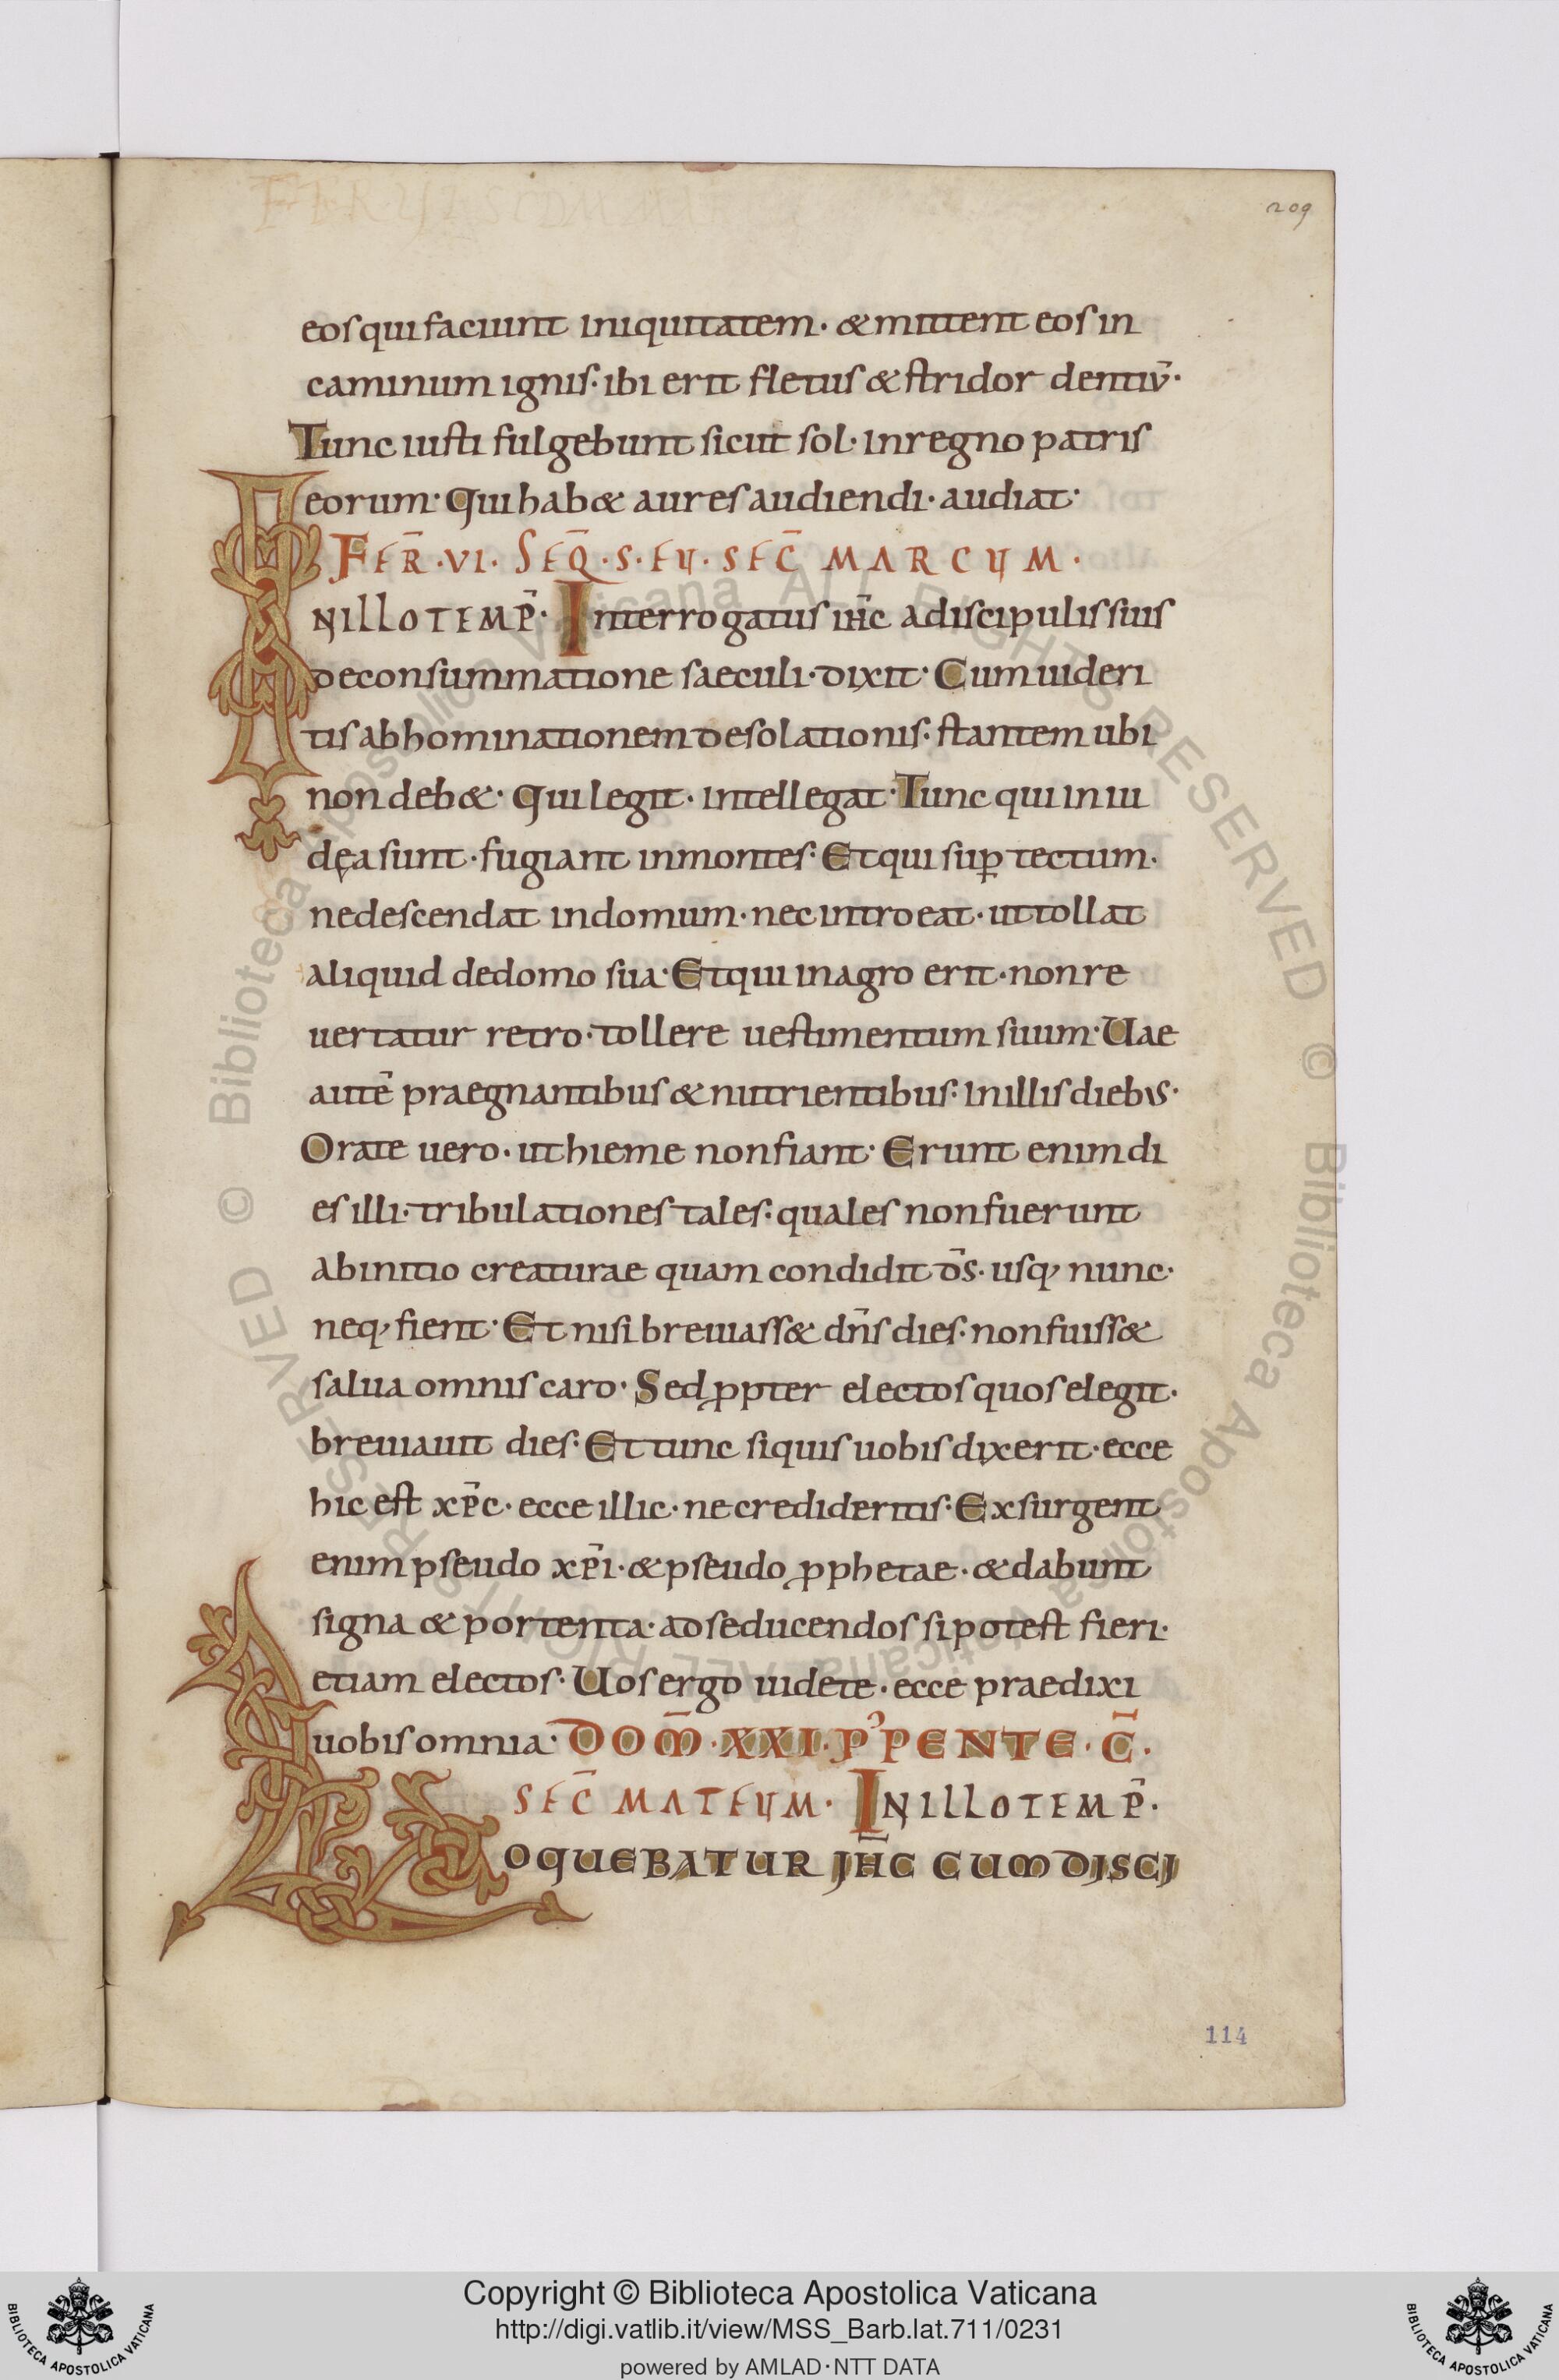 209
eos qui faciunt iniquitatem · & mittent eos in
caminum ignis · ibi erit fletus & stridor dentiū ·
Tunc iusti fulgebunt sicut sol · in regno patris
eorum · Qui hab& aures audiendi · audiat ·
FER̄ · VI · SEQ̄ · S · EU · SEC̄ MARCUM ·
IN ILLO TEMP̄ · Interrogatus ih̄c a discipulis suis
de consummatione saeculi · dixit · Cum uideri
tis abhominationem desolationis · stantem ubi
non deb& · Qui legit · intellegat · Tunc qui in iu
dęa sunt · fugiant in montes · Et qui suꝑ tectum ·
ne descendat in domum · nec introeat · ut tollat
aliquid de domo sua · Et qui in agro erit · non re
uertatur retro · tollere uestimentum suum · Uae
autē praegnantibus & nutrientibus · In illis diebus ·
Orate uero · ut hieme non fiant · Erunt enim di
es illi · tribulationes tales · quales non fuerunt
ab initio creaturae quam condidit d̄s · usq; nunc ·
neq; fient · Et nisi breuiass& dn̄s dies · non fuiss&
salua omnis caro · Sed ꝓpter electos quos elegit ·
breuiauit dies · Et tunc si quis uobis dixerit · ecce
hic est xp̄c · ecce illic · ne credideritis · Exsurgent
enim pseudo xp̄i · & pseudo ꝓphetae · & dabunt
signa & portenta · ad seducendos si potest fieri ·
etiam electos · Uos ergo uidete · ecce praedixi
uobis omnia · DOM̄ · XXI · P' PENTE · C̄ ·
SEC̄ MATEUM · IN ILLO TEMP̄ ·
LOQUEBATUR IH̄C CUM DISCI
114
© Biblioteca Apostolica Vaticana ALL RIGHTS RESERVED © Biblioteca Apostolica Vaticana ALL RIGHTS RESERVED
Copyright © Biblioteca Apostolica Vaticana
http://digi.vatlib.it/view/MSS_Barb.lat.711/0231
powered by AMLAD·NTT DATA
BIBLIOTECA APOSTOLICA VATICANA
BIBLIOTECA APOSTOLICA VATICANA